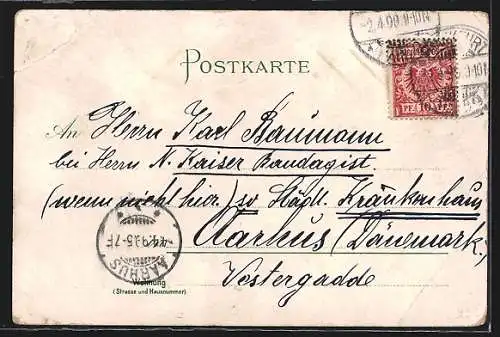 2.4.99.9-10N
POSTKARTE
An Herrn Karl Baumann
bei Herrn N. Kaiser Bandagist.
(wenn nicht hier,) so Städt. Kränkenhaus
Aarhus (Dänemark)
Vestergadde
AARHUS
Wohnung
(Strasse und Hausnummer)